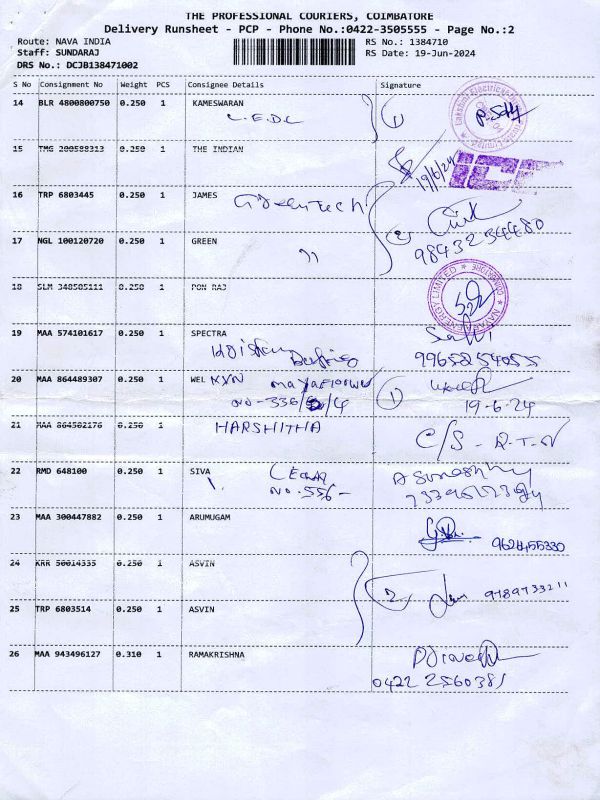 THE PROFESSIONAL COURIERS, COIMBATORE
Delivery Runsheet - PCP - Phone No.:0422-3505555 - Page No.:2
Route: NAVA INDIA
Staff: SUNDARAJ
DRS No.: DCJB138471002
RS No.: 1384710
RS Date: 19-Jun-2024
S No Consignment No Weight PCS Consignee Details Signature
14 BLR 4800800750 0.250 1 KAMESWARAN
1
15 TMG 200588313 0.250 1 THE INDIAN
19/6/24
16 TRP 6803445 0.250 1 JAMES
Greentech
2
17 NGL 100120720 0.250 1 GREEN
"
9843234480
18 SLM 348505111 0.250 1 PON RAJ
19 MAA 574101617 0.250 1 SPECTRA
20 MAA 864489307 0.250 1 WEL
1
19-6-24
21 MAA 864502176 0.250 1 HARSHITHA
C/S - R.T.N
22 RMD 648100 0.250 1 SIVA
No. 556 -
23 MAA 300447882 0.250 1 ARUMUGAM
9624455330
24 KRR 50014335 0.250 1 ASVIN
2
9789733211
25 TRP 6803514 0.250 1 ASVIN
26 MAA 943496127 0.310 1 RAMAKRISHNA
0422 2560381